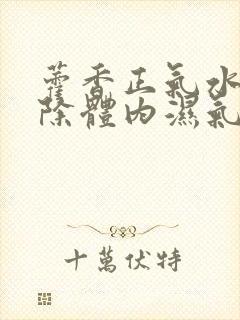 藿香正氣水
除體內濕氣
十萬伏特